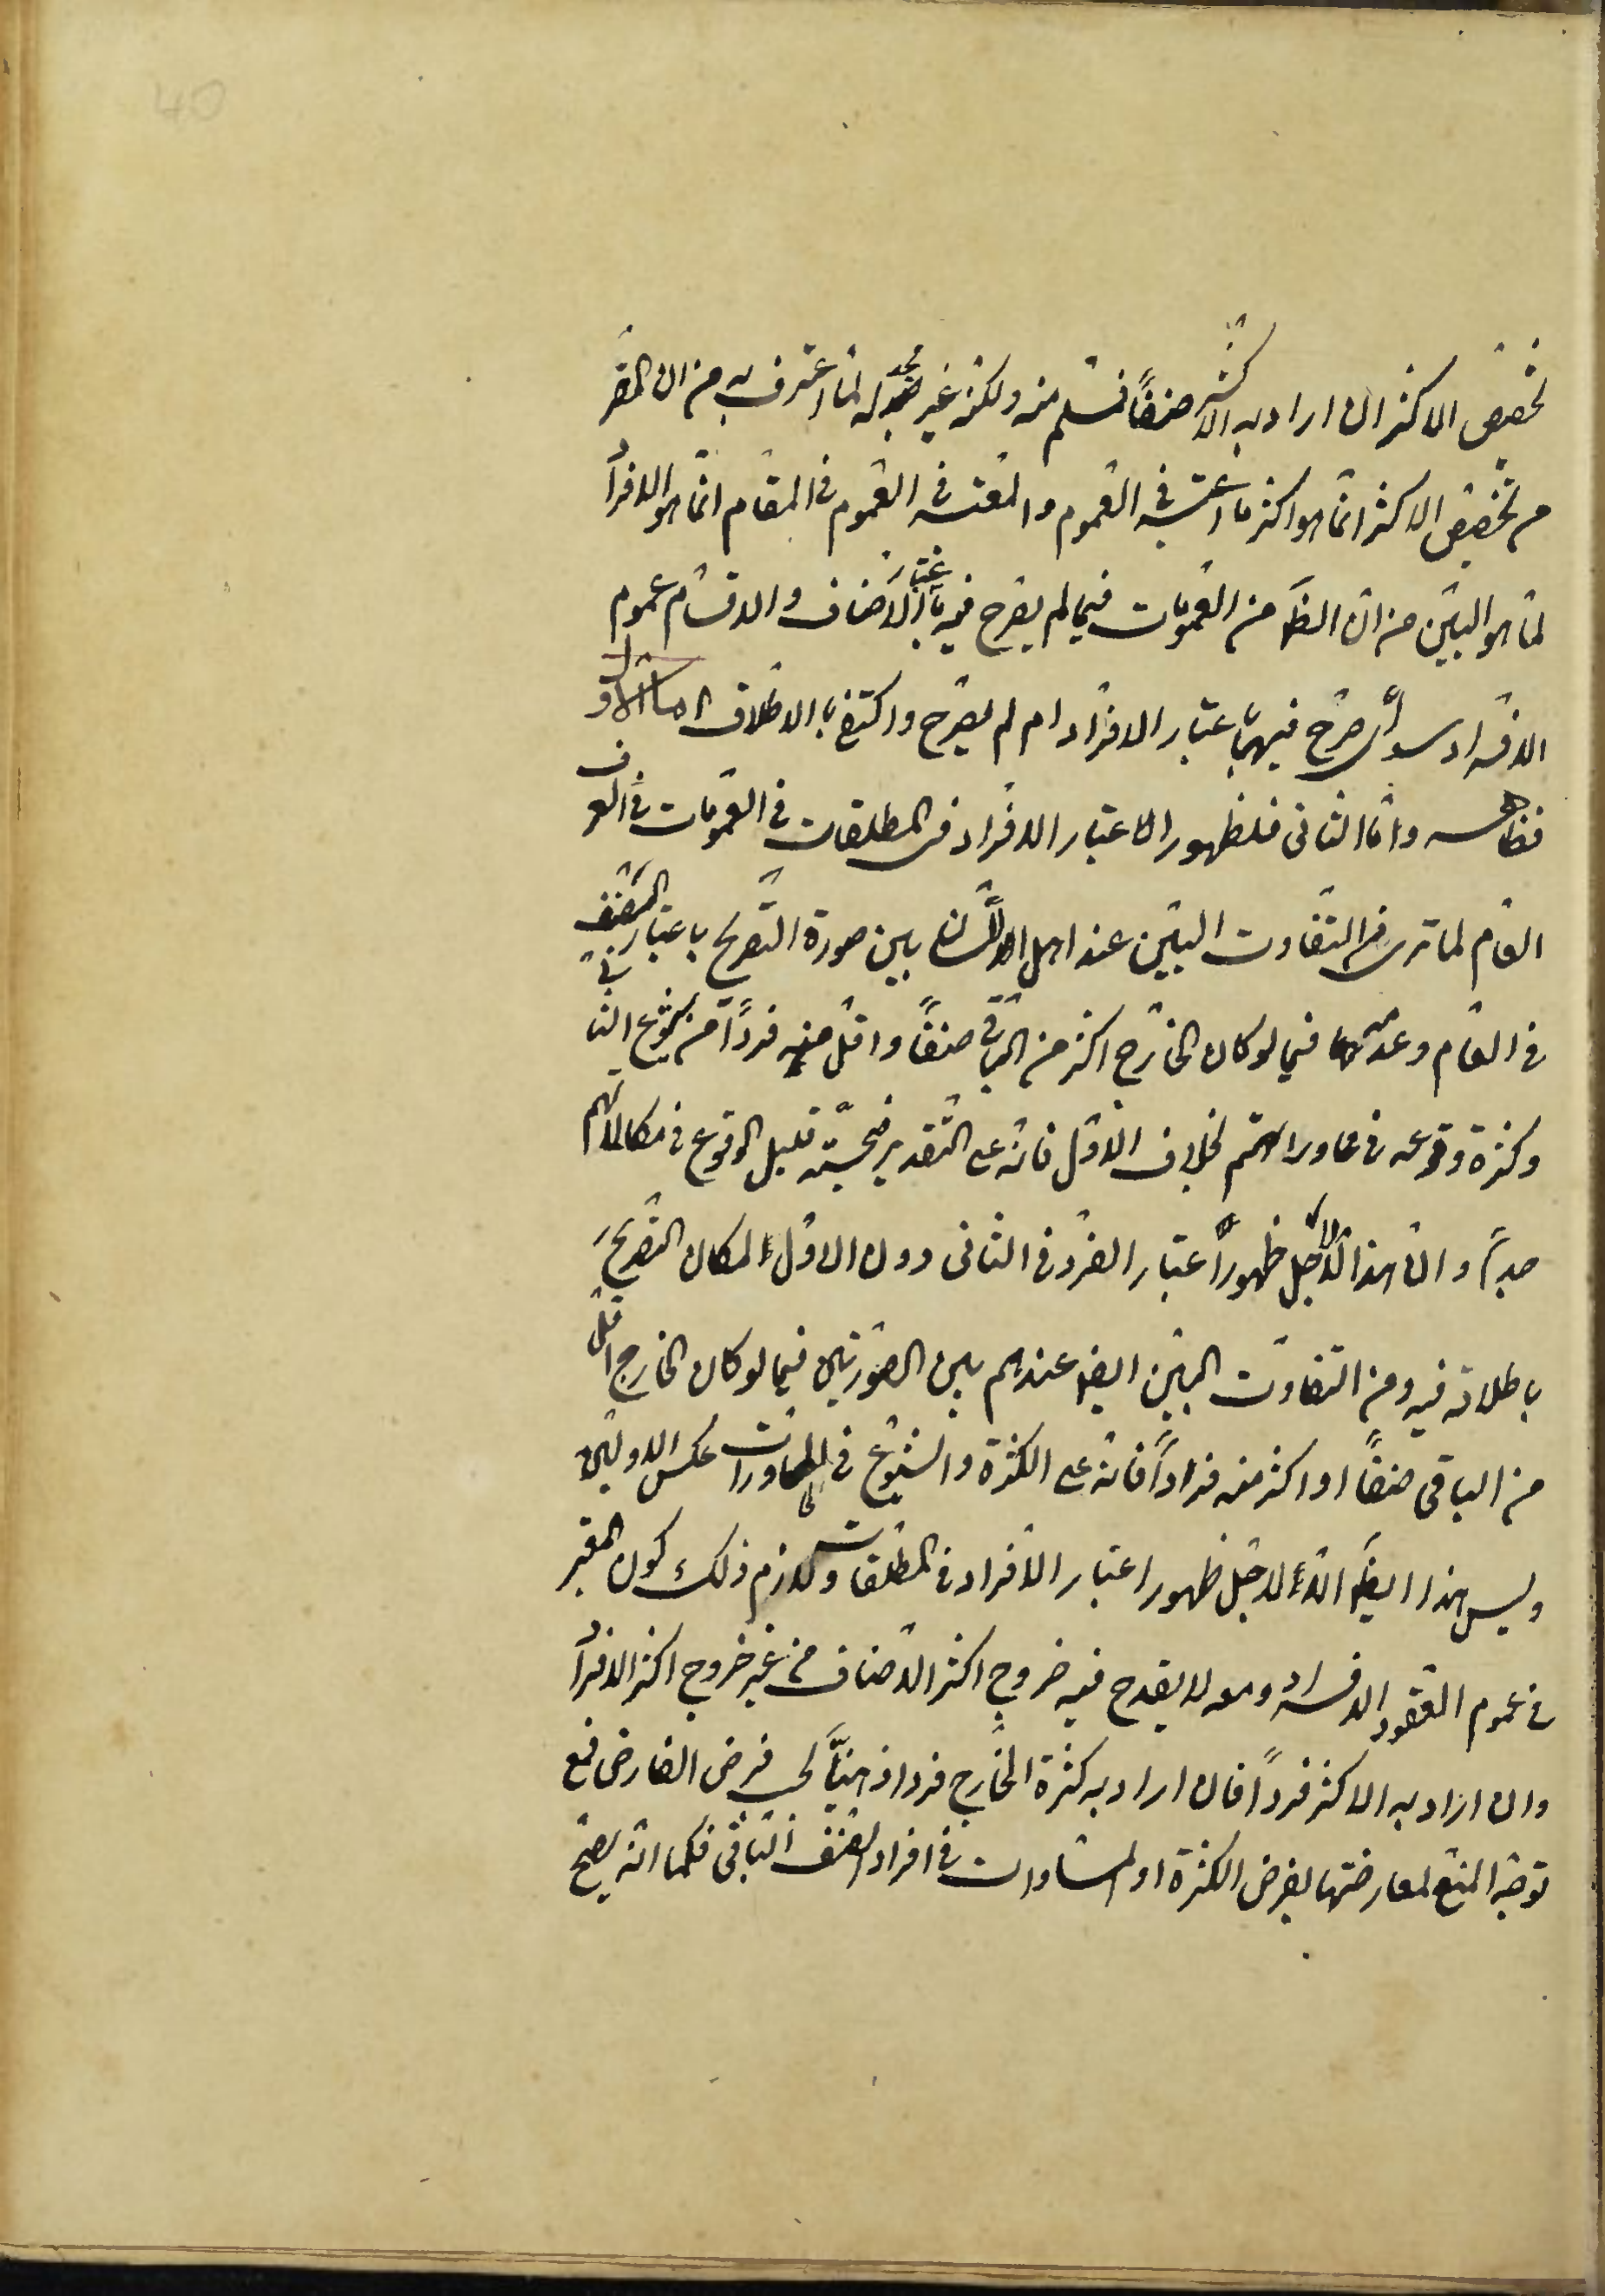 40
تخصيص الاكثر ان اراد به الاكثر صنفاً فمسلم منه ولكنه غير مجد له لما اعترف به من ان المضر
من تخصيص الاكثر انما هو اكثر ما اعتبر في العموم والمعتبر في العموم في المقام انما هو الافراد
لما هو البين من ان الظ من العمومات فيما لم يصرح فيه باعتبار الاصناف والاقسام عموم
الافراد سواء صرح فيها باعتبار الافراد ام لم يصرح واكتفى بالاطلاق اما الاول
فظاهر واما الثاني فلظهور اعتبار الافراد من المطلقات في العمومات في العرف
العام لما ترى من التفاوت البين عند اهل اللسان بين صورة التصريح باعتبار الصنف
في العام وعدمه فيما لو كان الخارج اكثر من الباقي صنفاً واقل منه فرداً من شيوع الثاني
وكثرة وقوعه في محاوراتهم بخلاف الاول فانه على التقدير صحته قليل الوقوع في مكالماتهم
جداً وان هذا الا لاجل ظهور اعتبار الفرد في الثاني دون الاول لمكان التصريح
باطلاقه فيه ومن التفاوت البين ايضا عندهم بين الصورتين فيما لو كان الخارج اقل
من الباقي صنفاً او اكثر منه فراداً فانه على الكثرة والشيوع في المحاورات عكس الاولين
وليس هذا ايضا الا لاجل ظهور اعتبار الافراد في المطلقات ولازم ذلك كون المعتبر
في عموم العقود الافراد ومعه لا يقدح فيه خروج اكثر الاصناف من غير خروج اكثر الافراد
وان اراد به الاكثر فرداً فان اراد به كثرة الخارج فردا ذهنياً فرض الفارض فمع
توجه المنع لمعارضتها بفرض الكثرة او المساوات في افراد الصنف الباقي فكما انه يصح